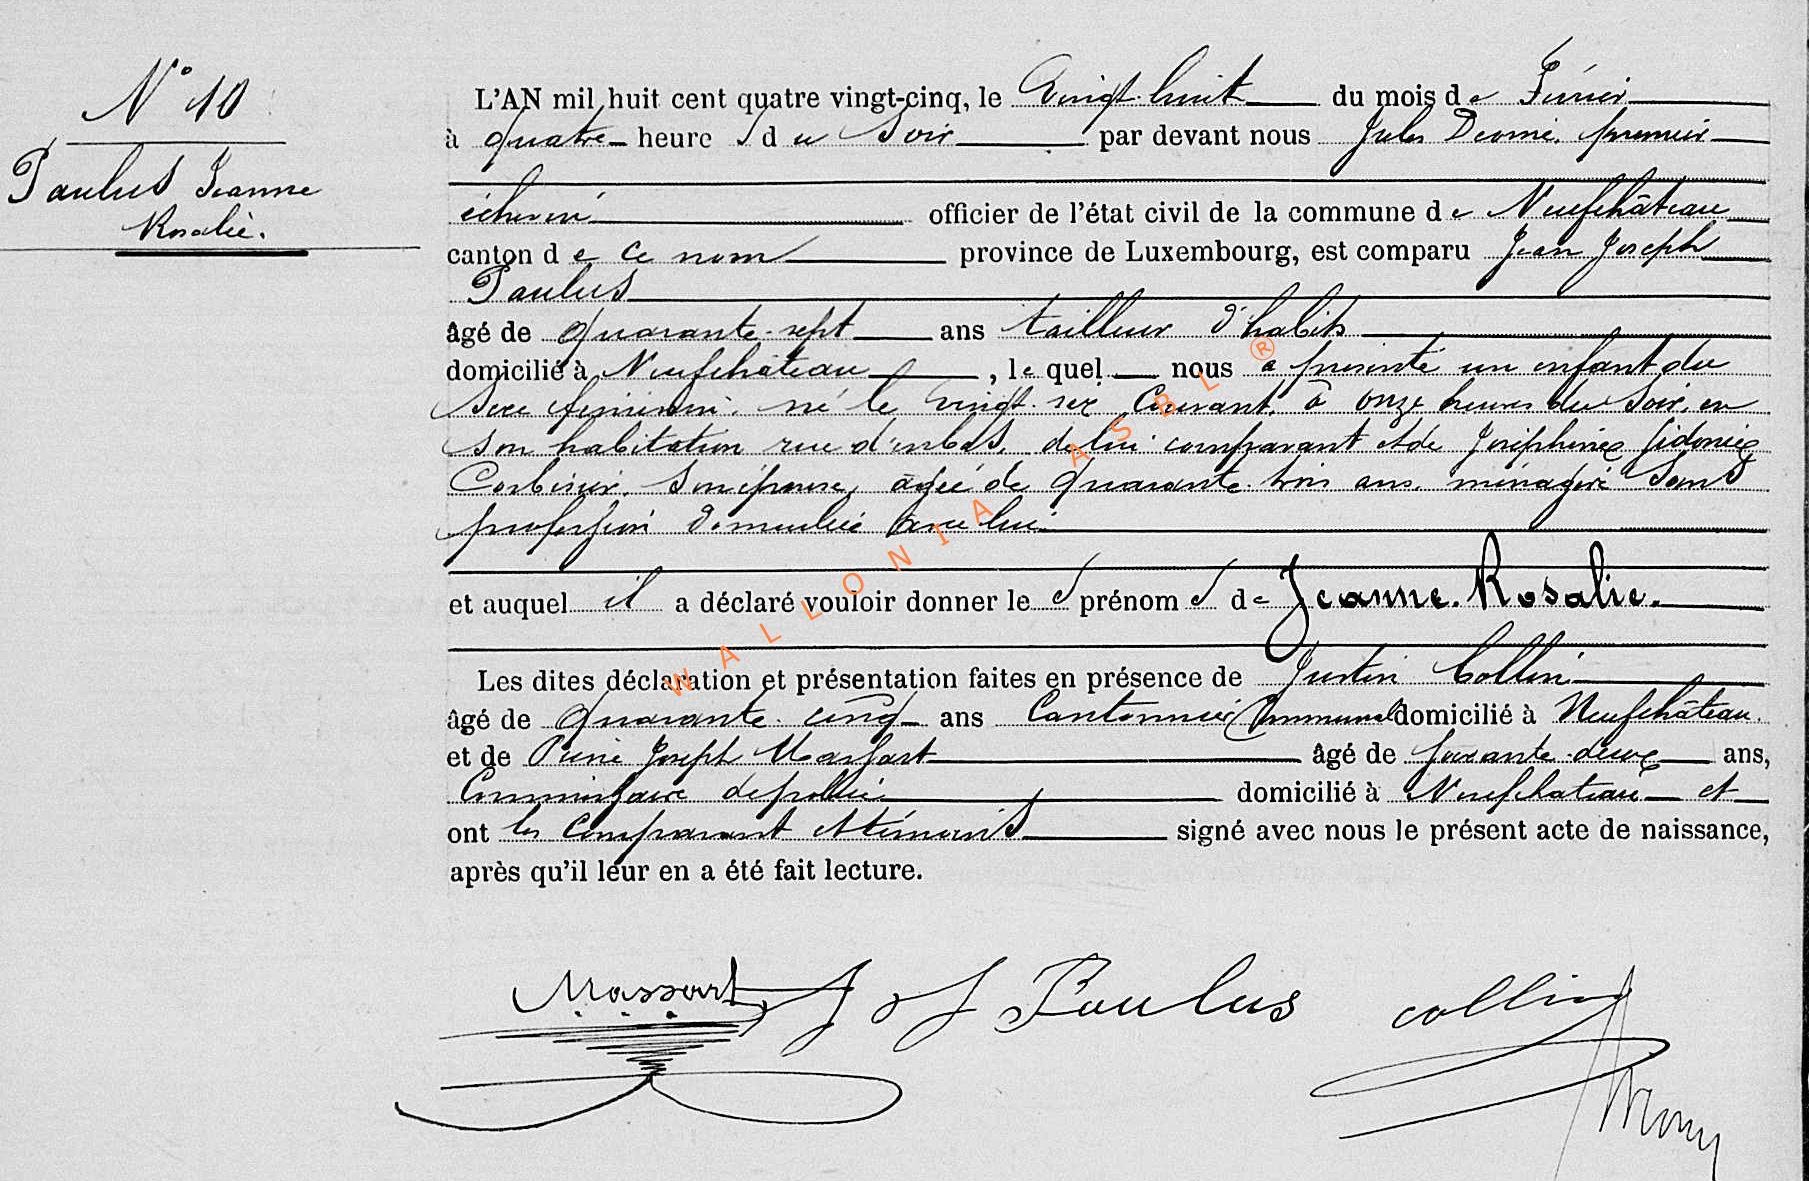 N° 10
Paulus Jeanne
Rosalie.
L'AN mil huit cent quatre vingt-cinq, le Vingt-huit du mois de Février
à quatre heures du Soir par devant nous Jules premier
échevin officier de l'état civil de la commune de Neufchâteau
canton de ce nom province de Luxembourg, est comparu Jean Joseph
Paulus
âgé de quarante-sept ans tailleur d'habits
domicilié à Neufchâteau, le quel nous a présenté un enfant du
Sexe féminin, né le vingt-six Courant, à onze heures du Soir, en
son habitation rue d'enbas, de lui comparant et de Joséphine Sidonie
Son épouse, âgée de quarante-trois ans, ménagère Sans
profession domiciliée avec lui
et auquel il a déclaré vouloir donner les prénoms de Jeanne. Rosalie.
Les dites déclaration et présentation faites en présence de Justin Collin
âgé de quarante-cinq ans Cantonnier Communal domicilié à Neufchâteau.
et de Pierre Joseph Massart âgé de soixante-deux ans,
Commissaire de police domicilié à Neufchateau et
ont les Comparant et témoins signé avec nous le présent acte de naissance,
après qu'il leur en a été fait lecture.
Massart J J Paulus collin
WALLONIA ASBL ®